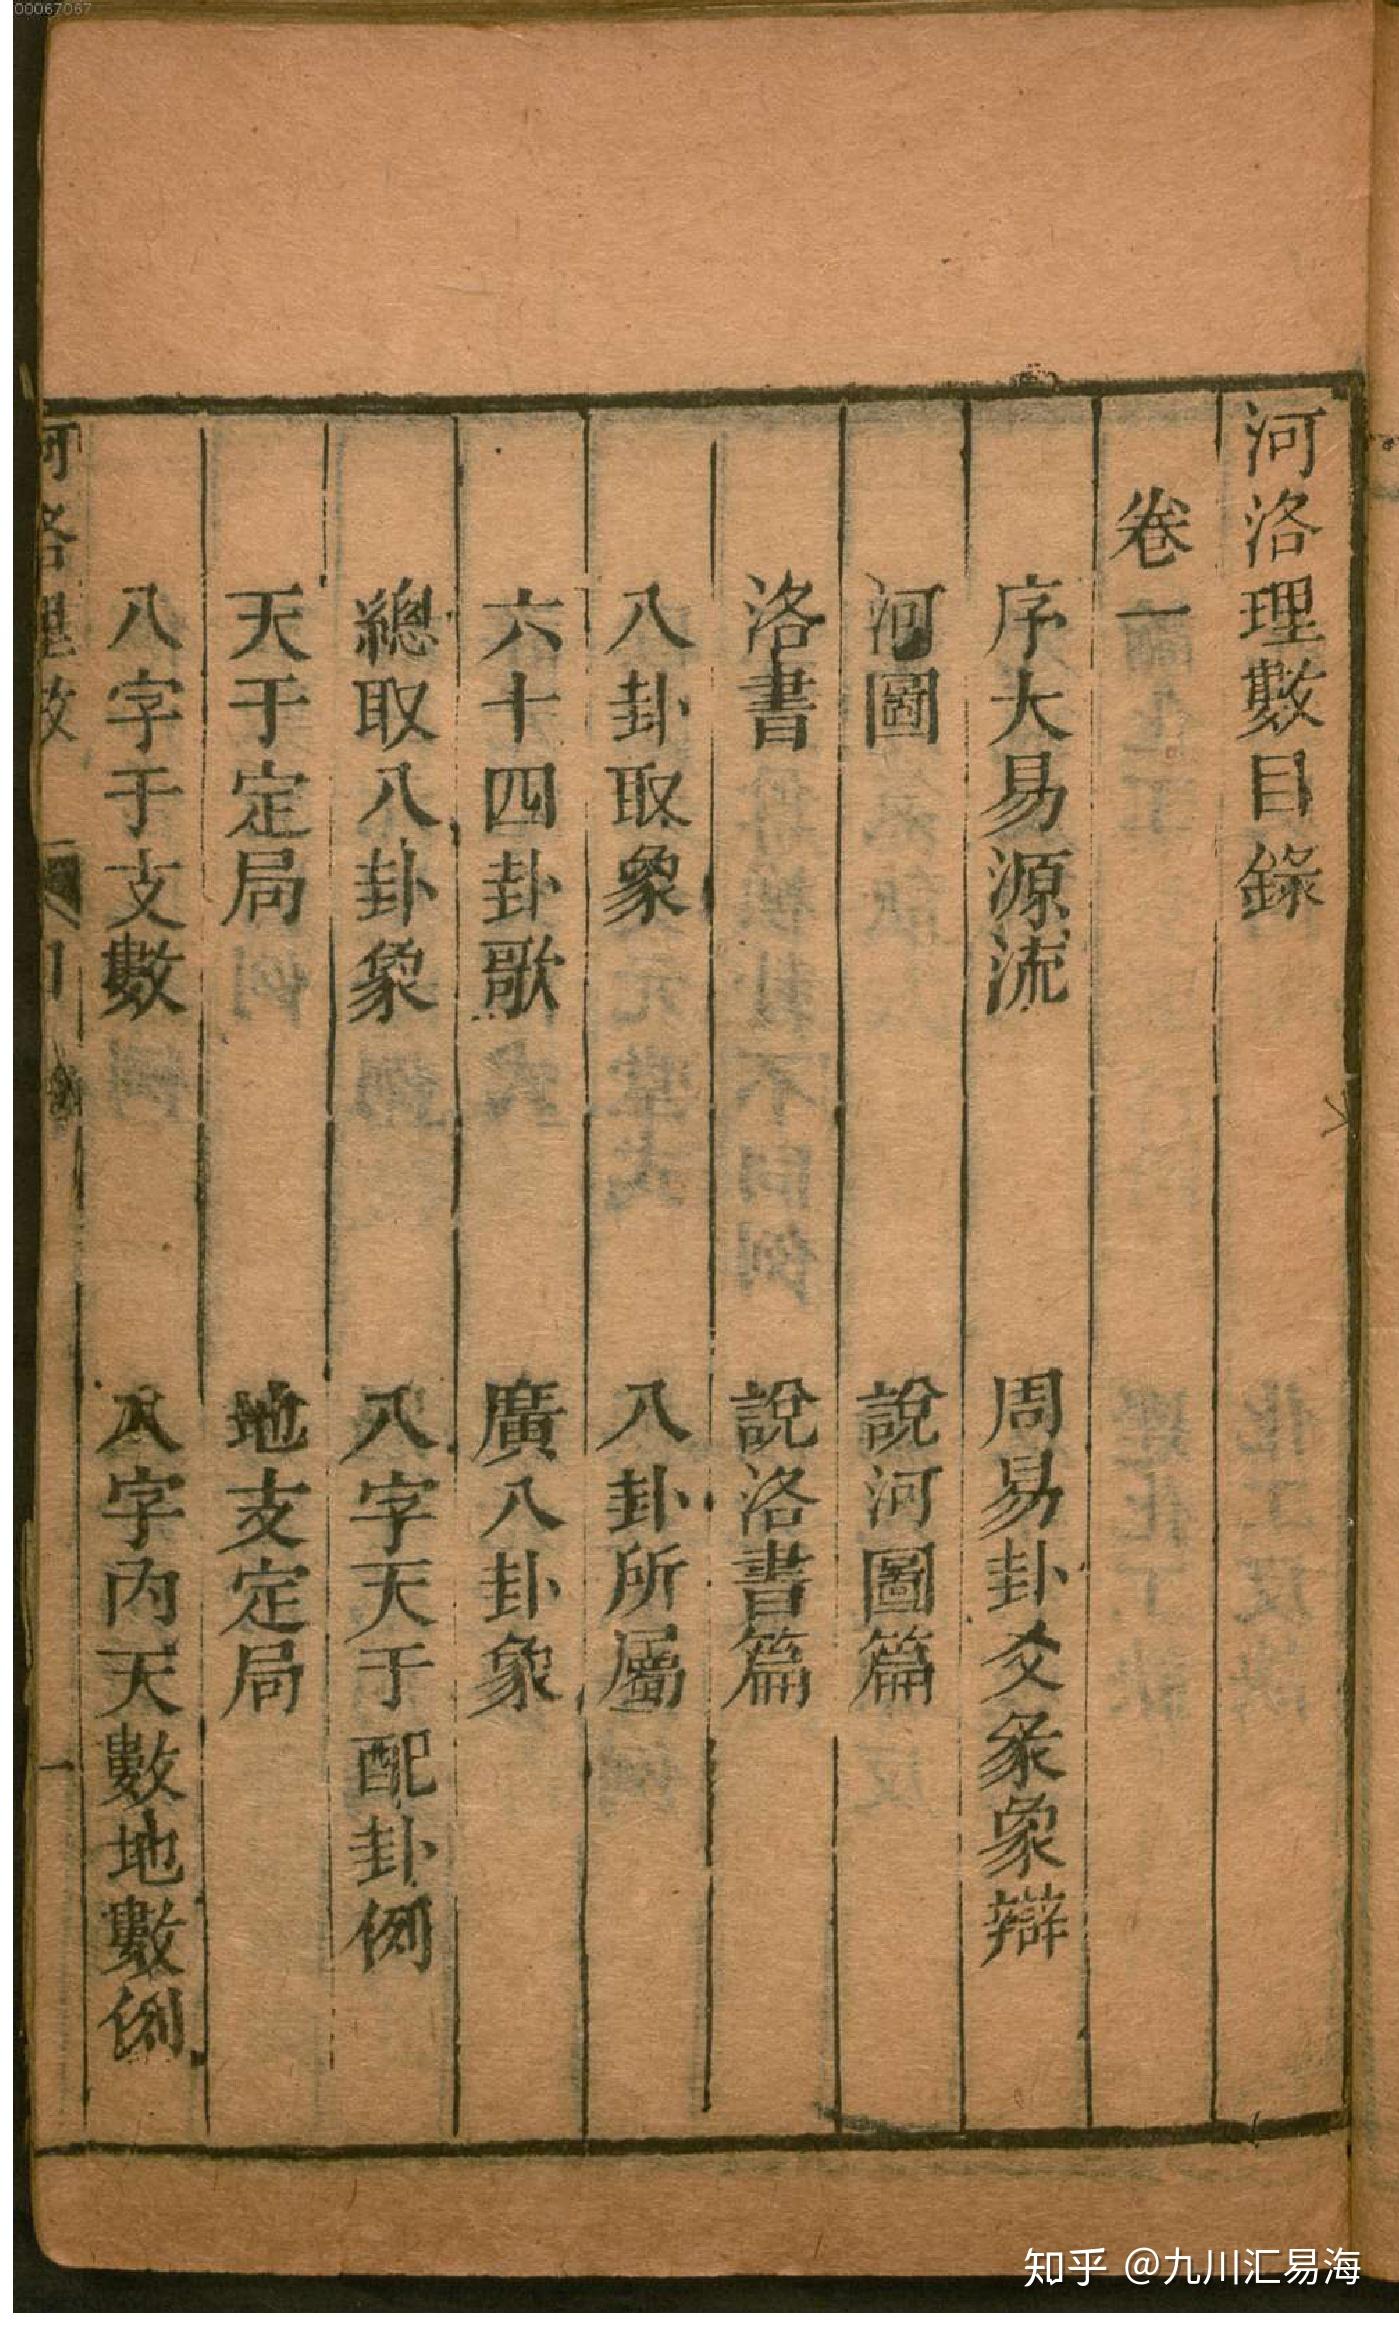 00067067
河洛理數目錄
卷一
序大易源流 周易卦爻彖象辯
河圖 說河圖篇
洛書 說洛書篇
八卦取象 八卦所屬
六十四卦歌 廣八卦象
總取八卦象 八字天于配卦例
天于定局 地支定局
八字于支數 八字內天數地數例
河洛理數
目
一
知乎 @九川汇易海